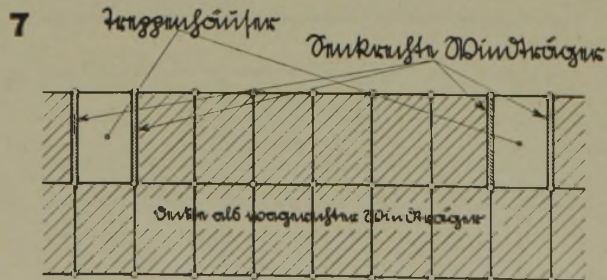 7
Treppenhäuser
Senkrechte Windträger
Decke als waagerechter Windträger